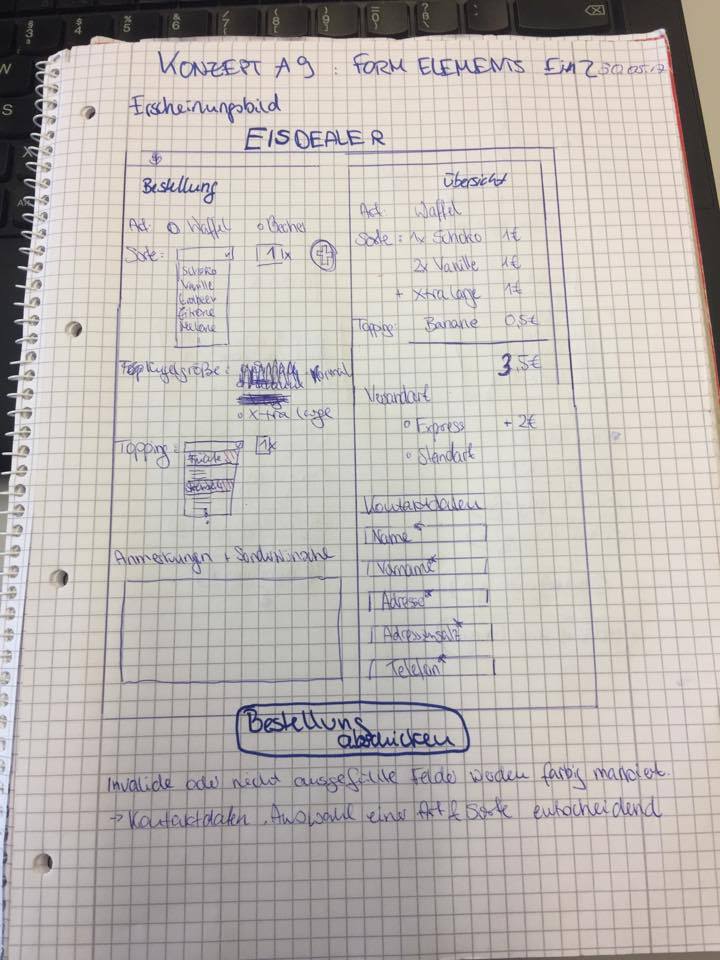 KONZEPT A9 : FORM ELEMENTS EIA2 30.05.17
Erscheinungsbild
EISDEALER
Bestellung
Art: Waffel Becher
Sorte: 1x +
Schoko
Vanille
Erdbeer
Zitrone
Melone
Kugelgröße: Normal
X-tra large
Topping: 1x
Anmerkungn + Sonderwünsche
Übersicht
Art: Waffel
Sorte: 1x Schoko 1€
2x Vanille 1€
+ Xtra large 1€
Topping: Banane 0,5€
3,5€
Versandart
Express + 2€
Standart
Kontaktdaten
Name*
Vorname*
Adresse*
Adresszusatz*
Telefon*
Bestellung
abschicken
Invalide oder nicht ausgefüllte Felder werden farbig markiert.
→ Kontaktdaten, Auswahl einer Art & Sorte entscheidend